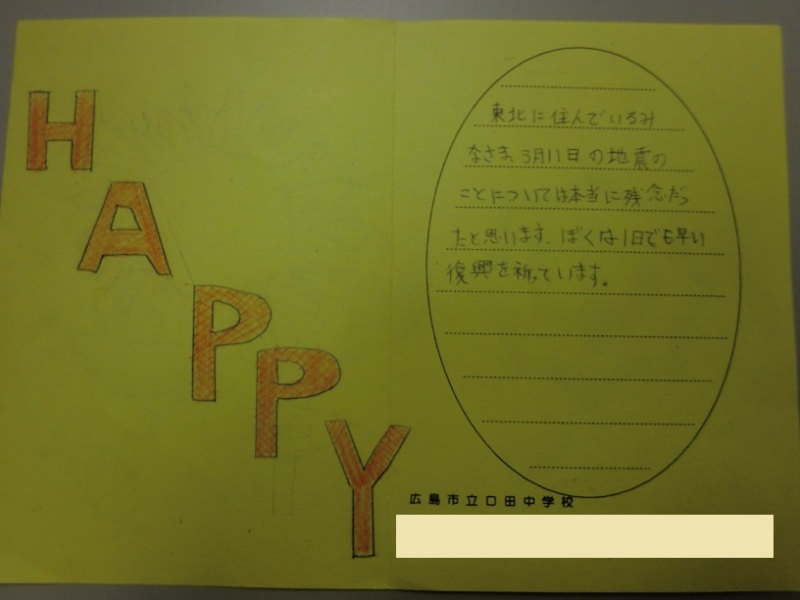 HAPPY
東北に住んでいるみ
なさま、3月11日の地震の
ことについては本当に残念だっ
たと思います。ぼくは1日でも早い
復興を祈っています。
広島市立口田中学校